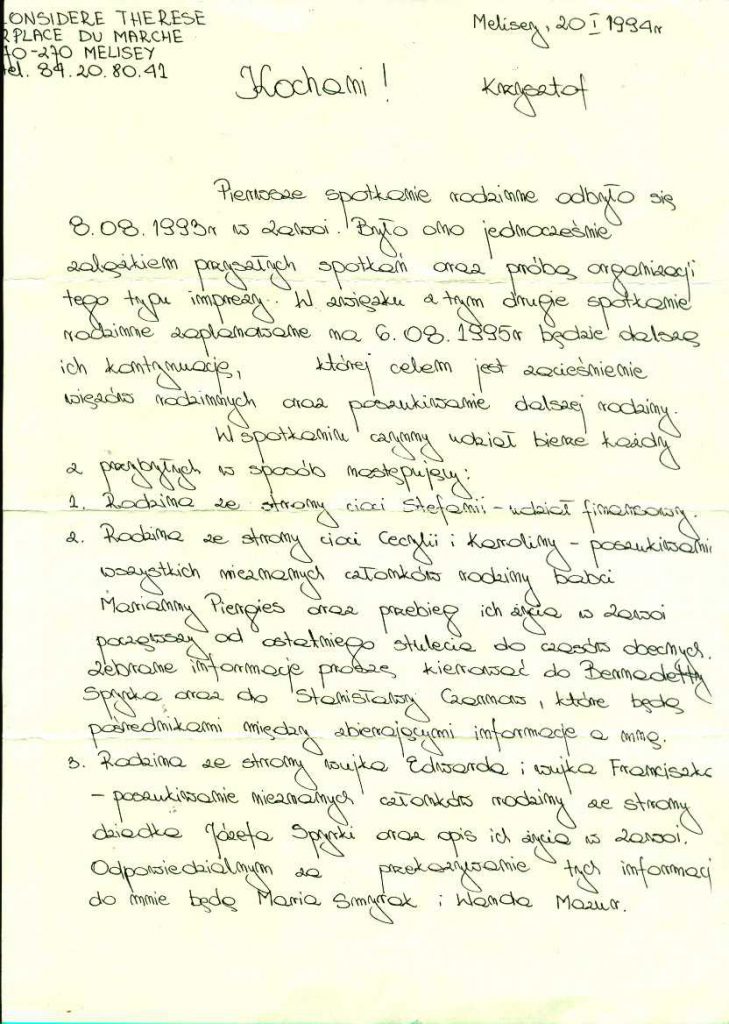 ONSIDERE THERESE
PLACE DU MARCHE
70-270 MELISEY
tel. 84.20.80.41
Melisey, 20 I 1994r
Kochani!
Krzysztof
Pierwsze spotkanie rodzinne odbyło się
8.08.1993r w Zawoi. Było ono jednocześnie
zalążkiem przyszłych spotkań oraz próbą organizacji
tego typu imprezy. W związku z tym drugie spotkanie
rodzinne zaplanowane na 6.08.1995r będzie dalszą
ich kontynuacją, której celem jest zacieśnienie
więzów rodzinnych oraz poszukiwanie dalszej rodziny.
W spotkaniu czynny udział bierze każdy
z przybyłych w sposób następujący:
1. Rodzina ze strony cioci Stefanii - udział finansowy.
2. Rodzina ze strony cioci Cecylii i Karoliny - poszukiwani
wszystkich nieznanych członków rodziny babci
Marianny Piergies oraz przebieg ich życia w Zawoi
począwszy od ostatniego stulecia do czasów obecnych.
Zebrane informacje proszę kierować do Bernadetty
Spyrka oraz do Stanisławy Czarnow, które będą
pośrednikami między zbierającymi informacje a mną.
3. Rodzina ze strony wujka Edwarda i wujka Franciszka
- poszukiwanie nieznanych członków rodziny ze strony
dziadka Józefa Spyrki oraz opis ich życia w Zawoi.
Odpowiedzialnym za przekazywanie tych informacj
do mnie będą Maria Smyrak i Wanda Mazur.